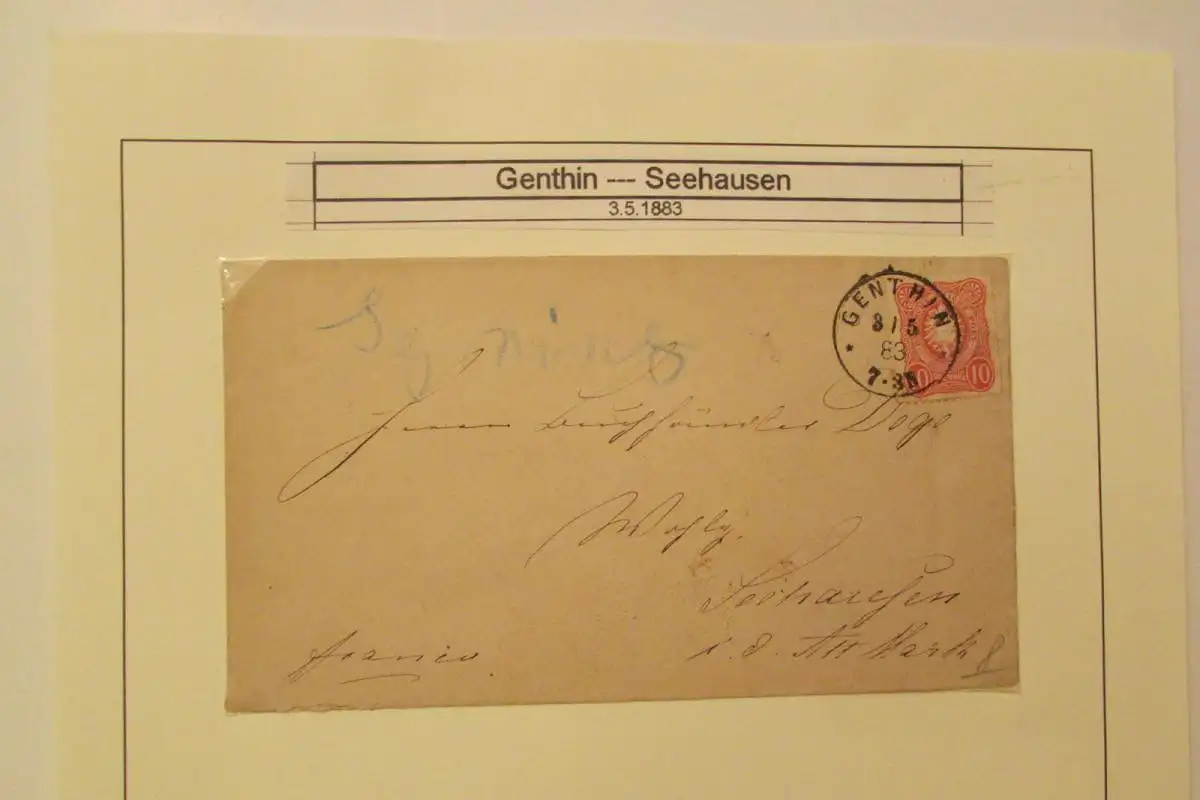 Genthin --- Seehausen
3.5.1883
GENTHIN
3 / 5
83
7-8N
10 10
Herrn Buchhändler Doge
Wohlg.
Seehausen
i. d. Alt Mark
franco.
8